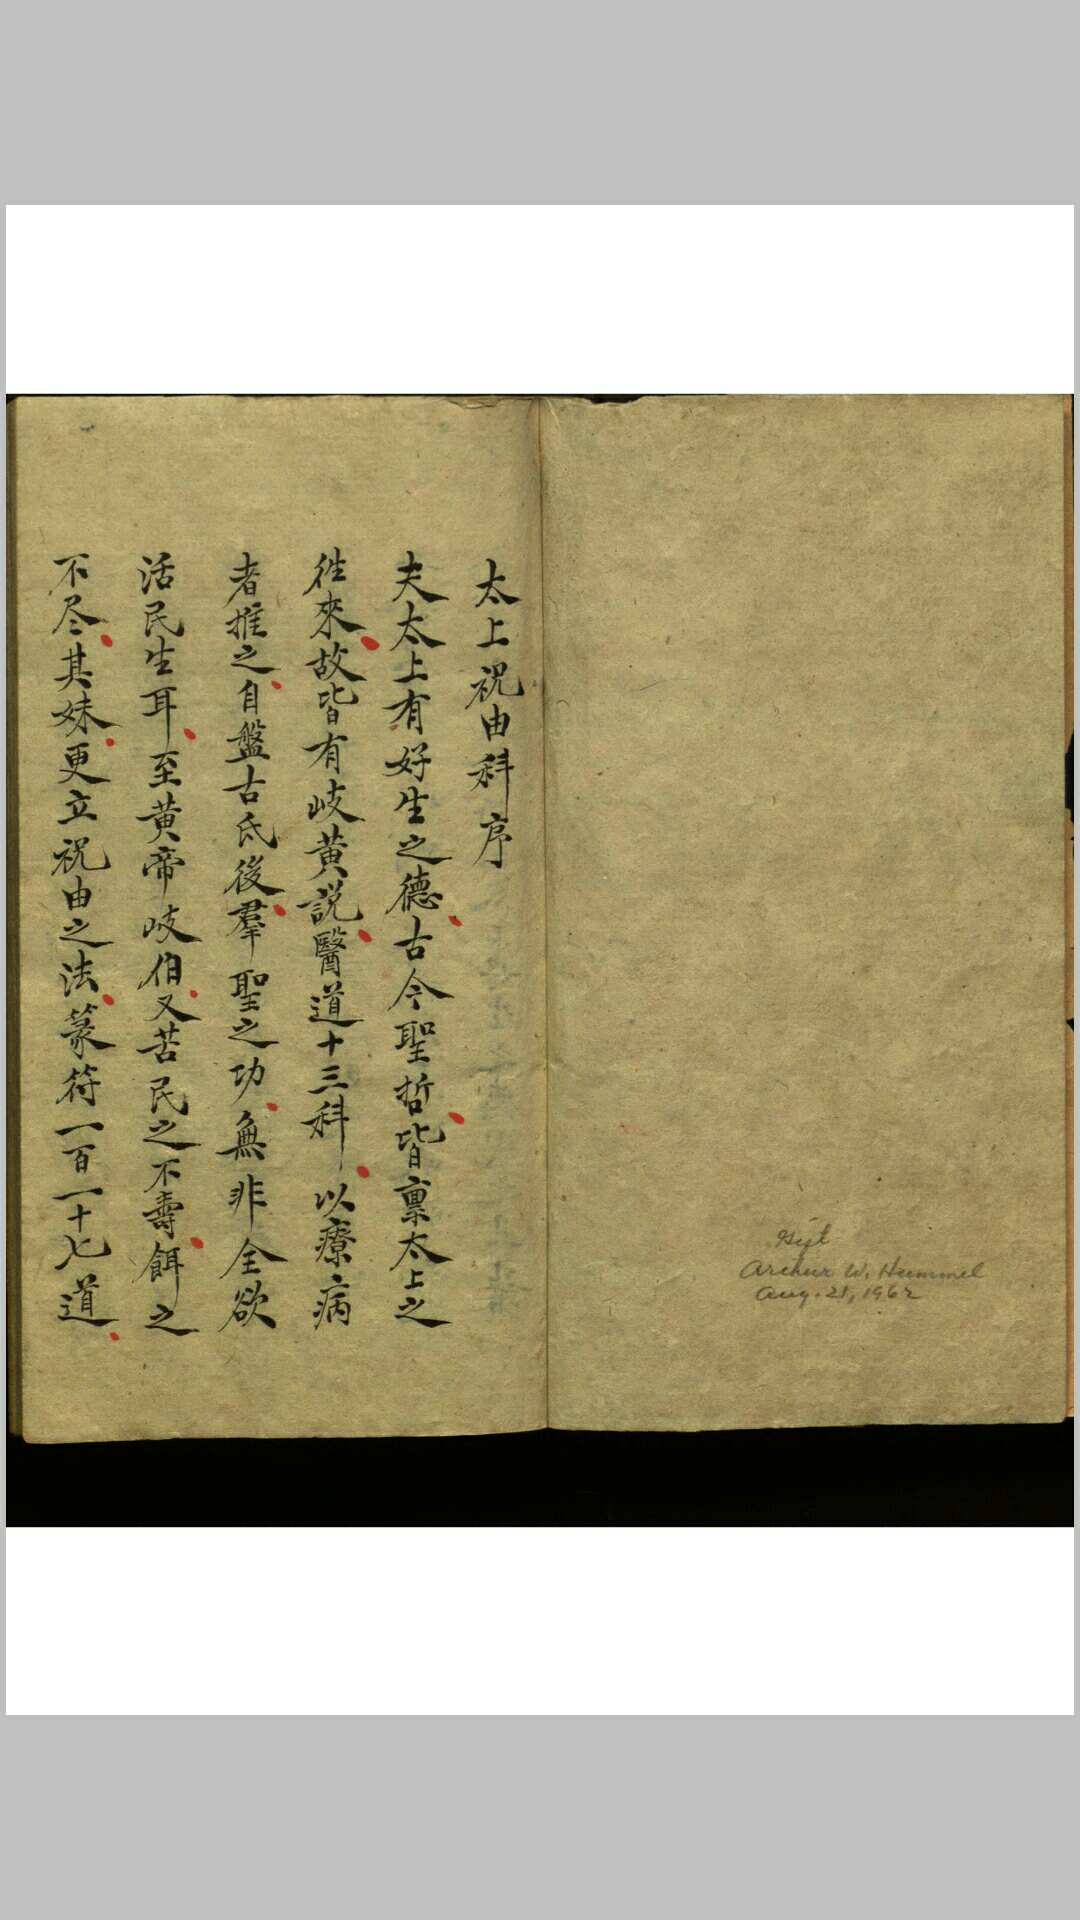 太上祝由科序
夫太上有好生之德古今聖哲皆稟太上之
徃來故皆有岐黃說醫道十三科以療病
者推之自盤古氏後羣聖之功無非全欲
活民生耳至黃帝岐伯又苦民之不壽餌之
不尽其妹更立祝由之法篆符一百一十七道
Gift
Arthur W. Hummel
Aug. 21, 1962